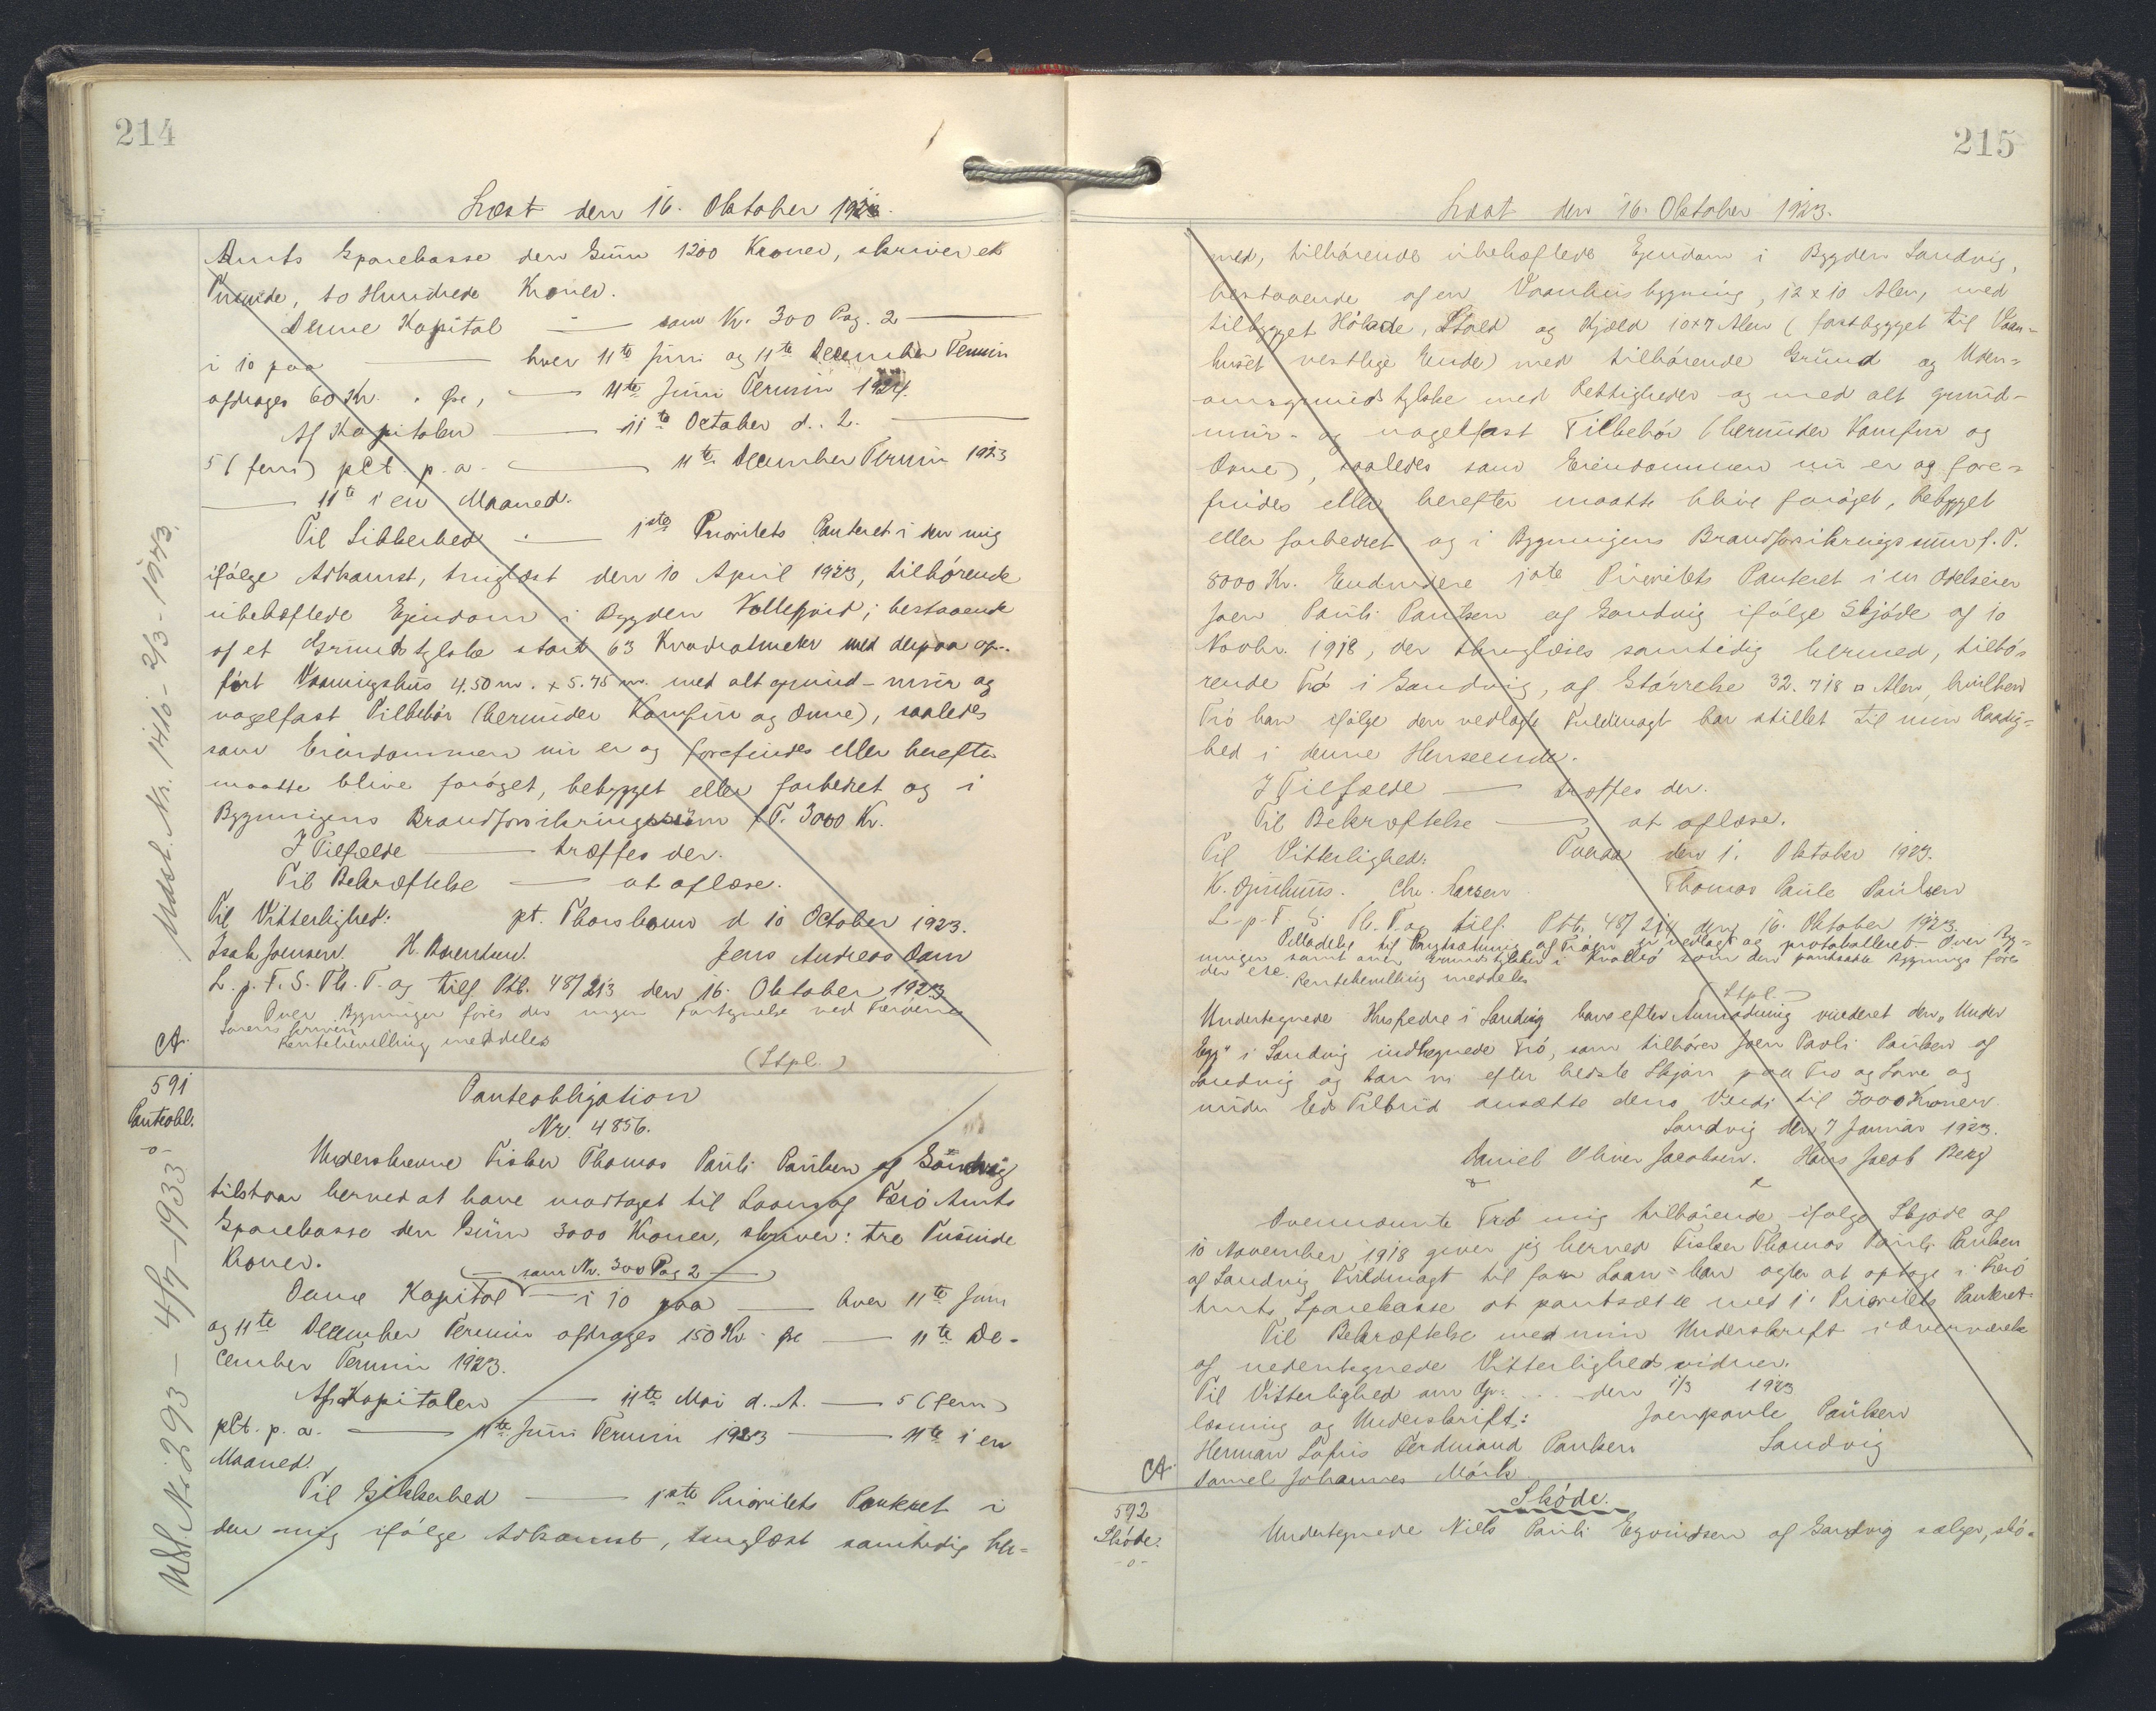 214
Læst den 16. Oktober 1923.
Amts Sparekasse den Sum 1200 Kroner, skriver et
Tusinde, to Hundrede Kroner.
Denne Kapital — som Nr. 300 Pag. 2 —
i 10 paa — hver 11te Juni og 11te December Termin
afdrages 60 Kr. " Øre, — 11te Juni Termin 1924.
Af Kapitalen — 11te October d. A. —
5 (fem) pCt. p. a. — 11te December Termin 1923
— 11te i en Maaned.
Til Sikkerhed — 1ste Prioritets Panteret i den mig
ifølge Adkomst, tinglæst den 10 April 1923, tilhørende
ubehæftede Ejendom i Bygden Kollefjord; bestaaende
af et Grundstykke stort 63 Kvadratmeter med derpaa op-
ført Vaaningshus 4.50 m. x 5.75 m. med alt grund- mur og
nagelfast Tilbehør (herunder Komfur og Ovne), saaledes
som Eiendommen nu er og forefindes eller herefter
maatte blive forøget, bebygget eller forbedret og i
Bygningens Brandforsikringssum f. T. 3000 Kr.
I Tilfælde — træffes der.
Til Bekræftelse — at aflæse.
Til Vitterlighed: pt. Thorshavn d 10 October 1923.
Isak Joensen. H. Jens Andreas Dam
L. p. F. S. Th. T. og tilf. Ptb. 48/213 den 16. Oktober 1923
Over Bygninger føres der ingen Fortegnelse ved Færøernes
Sorenskriveri
Rentebevilling meddeles
(Stpl.)
CA.
Mdst. Nr. 1410 - 2/3 - 1943.
591
Panteobl.
-o-
Panteobligation
Nr. 4856.
Underskrevne Fisker Thomas Pauli Paulsen af Sandvig
tilstaar herved at have modtaget til Laans af Færø Amts
Sparekasse den Sum 3000 Kroner, skriver: tre Tusinde
Kroner.
(— som Nr. 300 Pag 2 —)
Denne Kapital — i 10 paa — hver 11te Juni
og 11te December Termin afdrages 150 Kr. " Øre — 11te De-
cember Termin 1923.
Af Kapitalen — 11te Mai d. A. — 5 (fem)
pCt. p. a. — 11te Juni Termin 1923 — 11te i en
Maaned.
Til Sikkerhed — 1ste Prioritets Panteret i
den mig ifølge Adkomst, tinglæst samtidig her-
Mdst. Nr. 293 — 4/7 — 1933
215
Læst den 16. Oktober 1923.
med, tilhørende ubehæftede Ejendom i Bygden Sandvig,
bestaaende af en Vaanhusbygning, 12 x 10 Alen, med
tilbygget Hølade, Stald og Kjæld 10x7 Alen (fastbygget til Vaan-
huset vestlige Ende) med tilhørende Grund og Uden-
omsgrundstykke med Rettigheder og med alt grund-
mur- og nagelfast Tilbehør (herunder Komfur og
Ovne), saaledes som Eiendommen nu er og fore-
findes eller herefter maatte blive forøget, bebygget
eller forbedret og i Bygningens Brandforsikringssum f. T.
8000 Kr. Endvidere 1ste Prioritets Panteret i en Odelseier
Joen Pauli Paulsen af Sandvig ifølge Skjøde af 10
Novbr. 1918, der tinglæses samtidig hermed, tilhø-
rende Trø i Sandvig, af Størrelse 32.718 □ Alen, hvilken
Trø han ifølge den vedlagte Fuldmagt har stillet til min Raadig-
hed i denne Henseende.
I Tilfælde — træffes der.
Til Bekræftelse — at aflæse.
Til Vitterlighed: Tveraa den 1. Oktober 1923.
K. Djurhuus. Chr. Larsen. Thomas Paule Paulsen
L. p. F. S. Th. T. og tilf. Ptb. 48/214 den 16. Oktober 1923.
Tilladelse til Pantsætning af Trøen er vedlagt og protokolleret. Over Byg-
ninger samt over Grundstykker i Kvalbø som den pantsatte Bygnings føres
der eke.
Rentebevilling meddeles
(Stpl.)
Undertegnede Husfædre i Sandvig have efter Anmodning vurderet den „Under
Egg" i Sandvig indhegnede Trø, som tilhører Joen Pauli Paulsen af
Sandvig og kan vi efter bedste Skjøn paa Tro og Love og
under Eds Tilbud ansætte dens Værdi til 3000 Kroner.
Sandvig den 7 Januar 1923.
Daniel Oliver Jacobsen. Hans Jacob Berg
Ovennævnte Trø mig tilhørende ifølge Skjøde af
10 November 1918 giver jeg herved Fisker Thomas Pauli Paulsen
af Sandvig Fuldmagt til for Laan han agter at optage i Færø
Amts Sparekasse at pantsætte med 1. Prioritets Panteret.
Til Bekræftelse med min Underskrift i Overværelse
af undertegnede Vitterlighedsvidner.
Til Vitterlighed om Op- den 1/3 1923
læsning og Underskrift: Joenpaule Paulsen
Herman Sofus Ferdinand Paulsen Sandvig
Daniel Johannes Mørk
CA.
592
Skøde.
-o-
Skøde.
Undertegnede Niels Pauli Eyvindsen af Sandvig sælger, skø-